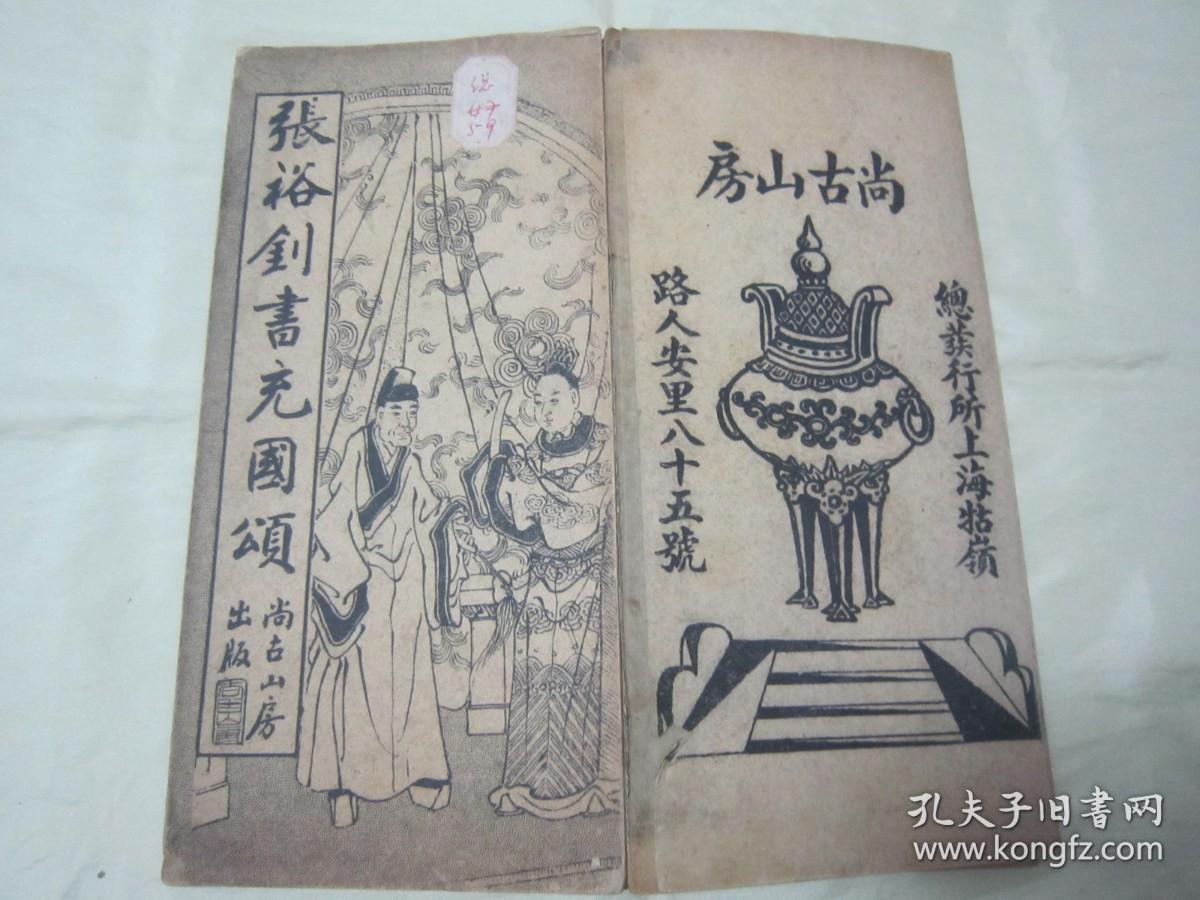 張裕釗書充國頌
尚古山房
出版
尚古山房
總發行所上海牯嶺
路人安里八十五號
孔夫子旧书网
www.kongfz.com